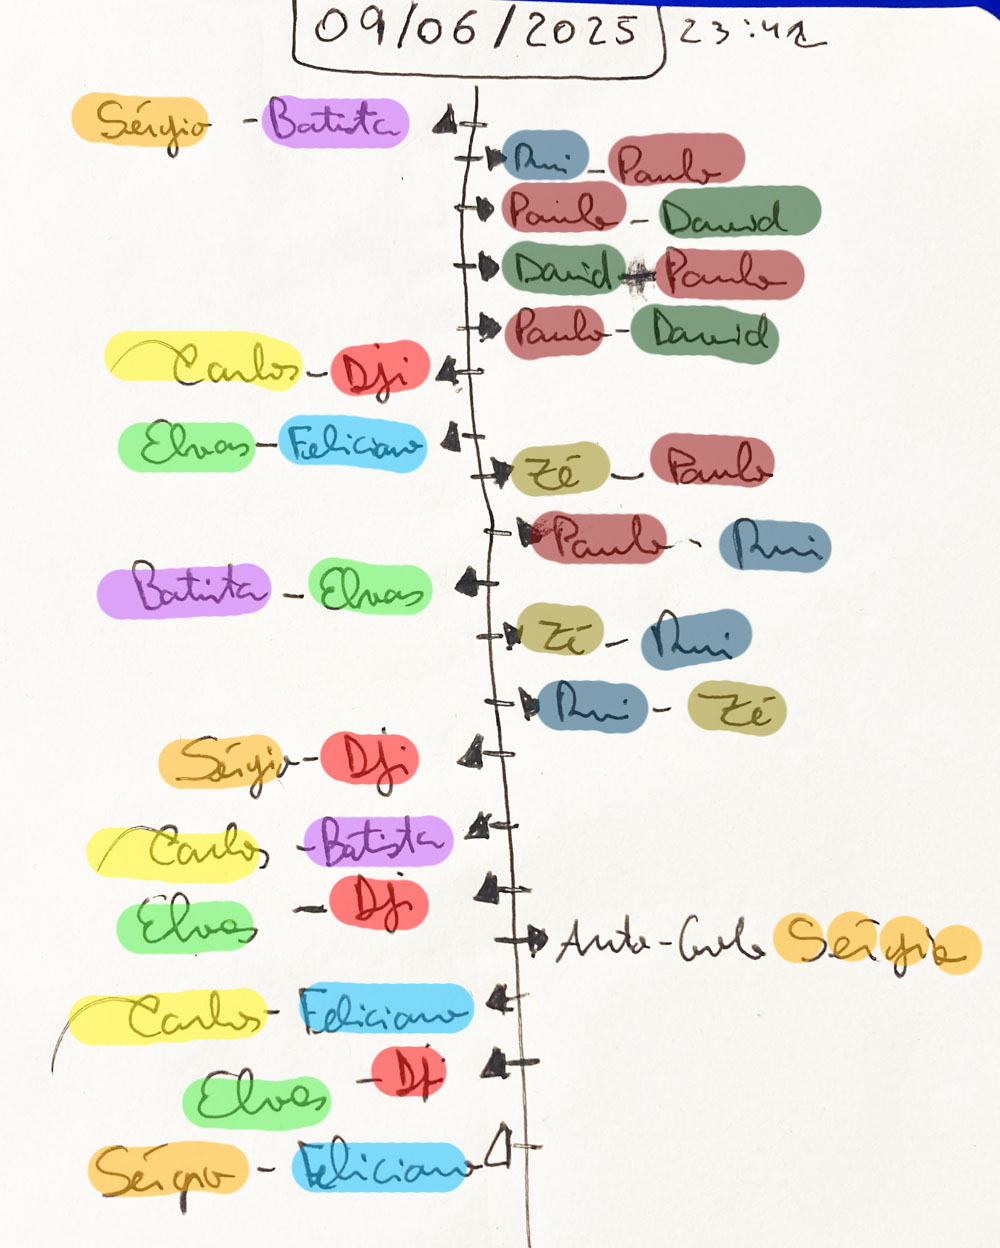 09/06/2025 23:42
Sérgio - Batista
Rui - Paulo
Paulo - David
David - Paulo
Paulo - David
Carlos - Dji
Elvas - Feliciano
Zé - Paulo
Paulo - Rui
Batista - Elvas
Zé - Rui
Rui - Zé
Sérgio - Dji
Carlos - Batista
Elvas - Dji
Auto-Golo Sérgio
Carlos - Feliciano
Elvas - Dji
Sérgio - Feliciano